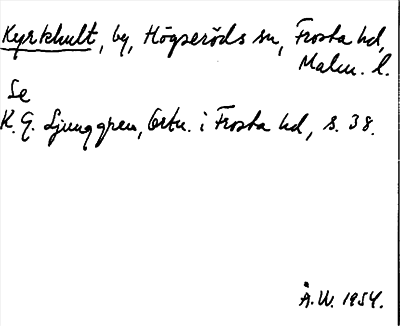 Kyrkhult, by, Högseröds sn, Frosta hd,
Malm. l.
Se
K. G. Ljunggren, Ortn. i Frosta hd, s. 38.
Å. W. 1954.